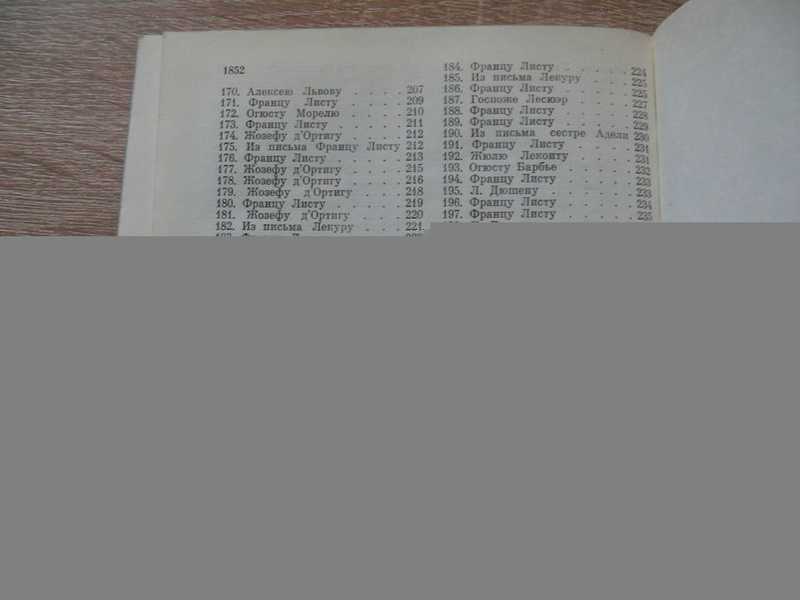 1852
170. Алексею Львову . . . . . 207
171. Францу Листу . . . . . 209
172. Огюсту Морелю . . . . . 210
173. Францу Листу . . . . . 211
174. Жозефу д'Ортигу . . . . 212
175. Из письма Францу Листу 212
176. Францу Листу . . . . . 213
177. Жозефу д'Ортигу . . . . 215
178. Жозефу д'Ортигу . . . . 216
179. Жозефу д'Ортигу . . . 218
180. Францу Листу . . . . . 219
181. Жозефу д'Ортигу . . . . 220
182. Из письма Лекуру . . . 221
184. Францу Листу . . . . . 224
185. Из письма Лекуру . . . . 225
186. Францу Листу . . . . . 225
187. Госпоже Лесюэр . . . . 227
188. Францу Листу . . . . . 228
189. Францу Листу . . . . . 229
190. Из письма сестре Адели 230
191. Францу Листу . . . . 231
192. Жюлю Леконту . . . . 231
193. Огюсту Барбье . . . . . 232
194. Францу Листу . . . . . 233
195. Л. Дюшену . . . . . . 233
196. Францу Листу . . . . . 234
197. Францу Листу . . . . . 235